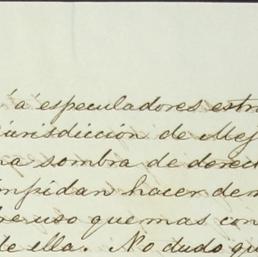 á especuladores estr
jurisdicción de Mej
na sombra de derec
impidan hacer de m
re uso que mas con
de ella. No dudo qu